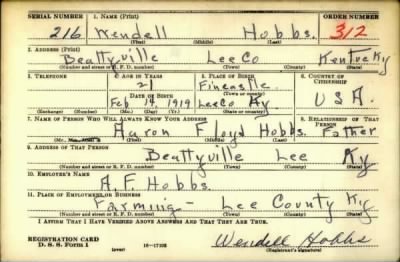 SERIAL NUMBER 1. NAME (Print) ORDER NUMBER
216 Wendell Hobbs. 312
(First) (Middle) (Last)
2. ADDRESS (Print)
Beattyville Lee Co Kentucky
(Number and street or R. F. D. number) (Town) (County) (State)
3. TELEPHONE 4. AGE IN YEARS 5. PLACE OF BIRTH 6. COUNTRY OF CITIZENSHIP
21 Fincastle
DATE OF BIRTH (Town or county)
Feb 14 1919 Lee Co Ky U S A.
(Exchange) (Number) (Mo.) (Day) (Yr.) (State or country)
7. NAME OF PERSON WHO WILL ALWAYS KNOW YOUR ADDRESS 8. RELATIONSHIP OF THAT PERSON
Aaron Floyd Hobbs. Father
(First) (Middle) (Last)
9. ADDRESS OF THAT PERSON
Beattyville Lee Ky
(Number and street or R. F. D. number) (Town) (County) (State)
10. EMPLOYER'S NAME
A. F. Hobbs.
11. PLACE OF EMPLOYMENT OR BUSINESS
Farming - Lee County Ky
(Number and street or R. F. D. number) (Town) (County) (State)
I AFFIRM THAT I HAVE VERIFIED ABOVE ANSWERS AND THAT THEY ARE TRUE.
REGISTRATION CARD
D. S. S. Form 1 (over) Wendell Hobbs
(Registrant's signature)